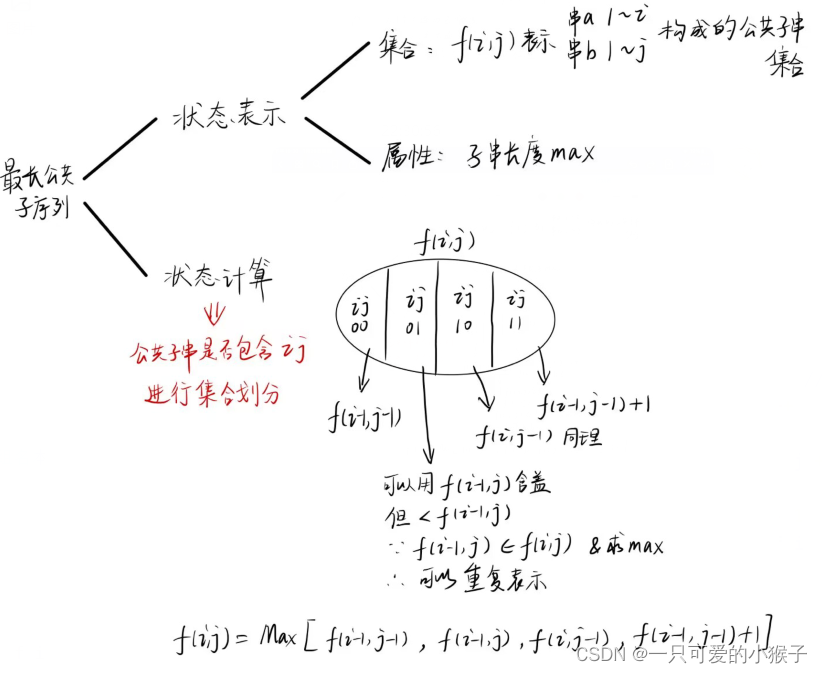 最长公共
子序列
状态表示
集合：f(i,j)表示 串a 1~i 构成的公共子串
串b 1~j 集合
属性：子串长度max
状态计算
公共子串是否包含 ij
进行集合划分
f(i,j)
ij ij ij ij
00 01 10 11
f(i-1,j-1)
f(i-1,j-1)+1
f(i,j-1) 同理
可以用 f(i-1,j) 含盖
但 < f(i-1,j)
∵ f(i-1,j) ∈ f(i,j) & 求max
∴ 可以重复表示
f(i,j) = Max [ f(i-1,j-1) , f(i-1,j) , f(i,j-1) , f(i-1,j-1)+1 ]
CSDN @一只可爱的小猴子